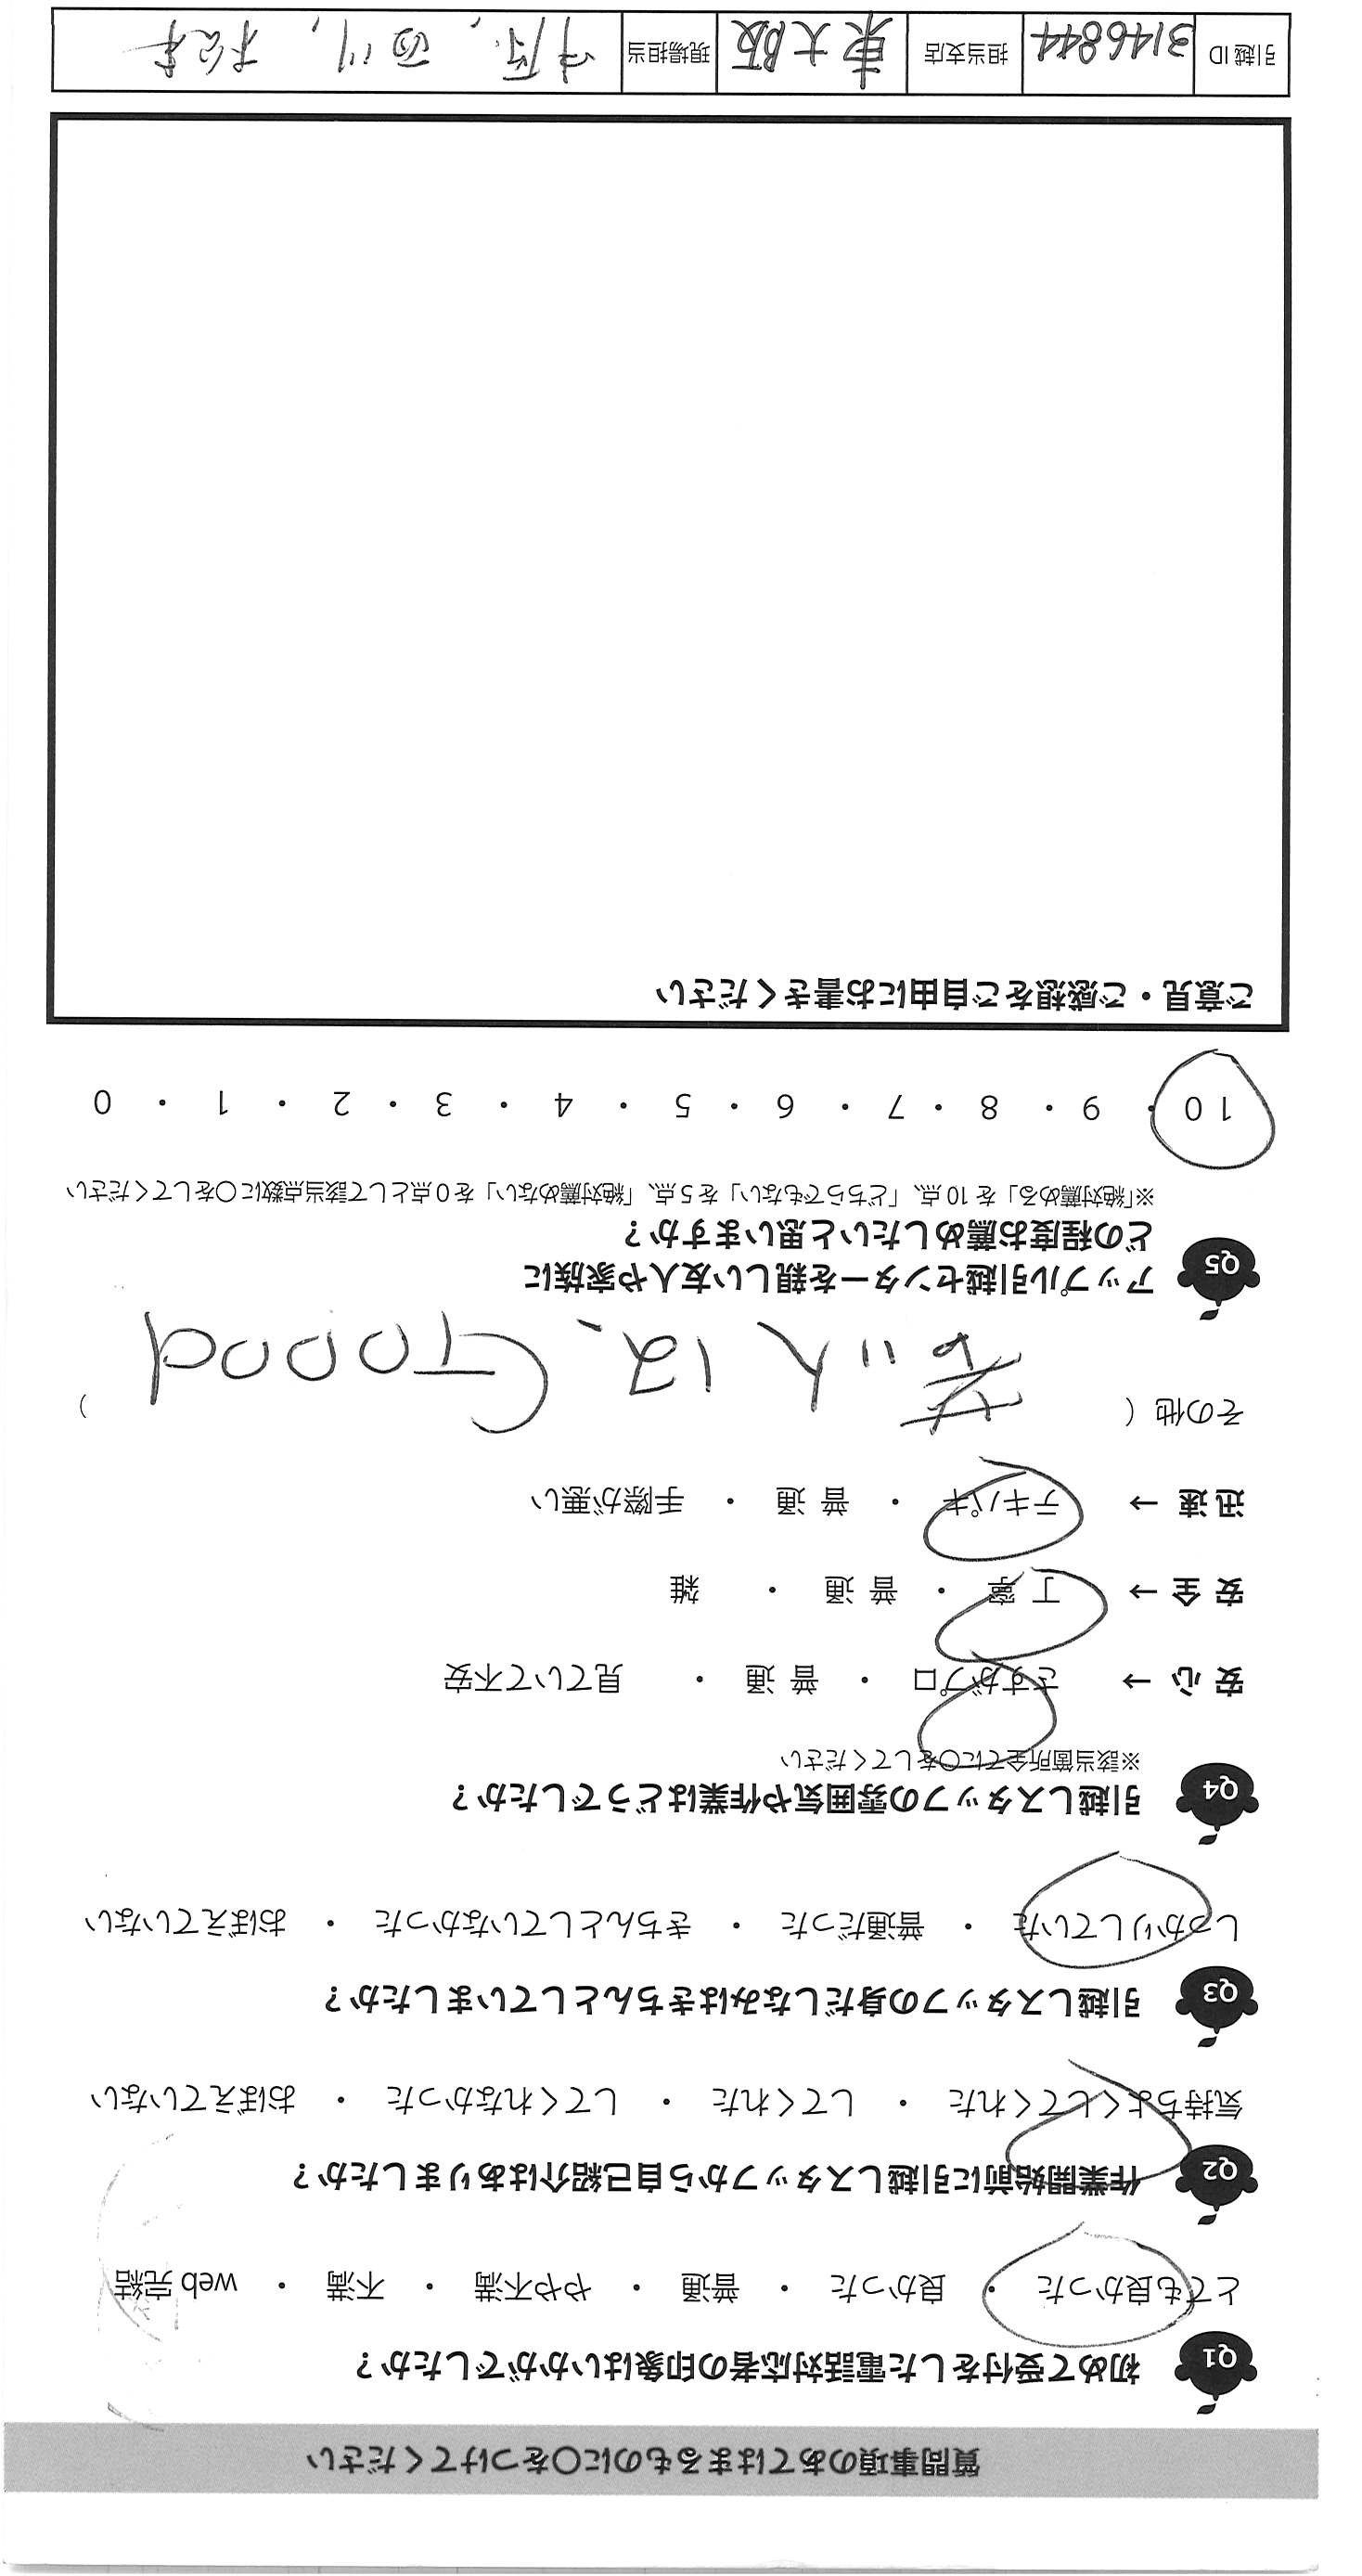 質問事項のあてはまるものに〇をつけてください
Q1 初めて受付をした電話対応者の印象はいかがでしたか？
とても良かった ・ 良かった ・ 普通 ・ やや不満 ・ 不満 ・ web完結
Q2 作業開始前に引越しスタッフから自己紹介はありましたか？
気持ちよくしてくれた ・ してくれた ・ してくれなかった ・ おぼえていない
Q3 引越しスタッフの身だしなみはきちんとしていましたか？
しっかりしていた ・ 普通だった ・ きちんとしていなかった ・ おぼえていない
Q4 引越しスタッフの雰囲気や作業はどうでしたか？
※該当箇所全てに〇をしてください
安心 → さすがプロ ・ 普通 ・ 見ていて不安
安全 → 丁寧 ・ 普通 ・ 雑
迅速 → テキパキ ・ 普通 ・ 手際が悪い
その他（ Goood ）
Q5 アップル引越センターを親しい友人や家族に
どの程度お薦めしたいと思いますか？
※「絶対薦める」を10点、「どちらでもない」を5点、「絶対薦めない」を0点として該当点数に〇をしてください
10 ・ 9 ・ 8 ・ 7 ・ 6 ・ 5 ・ 4 ・ 3 ・ 2 ・ 1 ・ 0
ご意見・ご感想をご自由にお書きください
引越ID 3146844 担当支店 東大阪 現場担当 中原、西川、松本